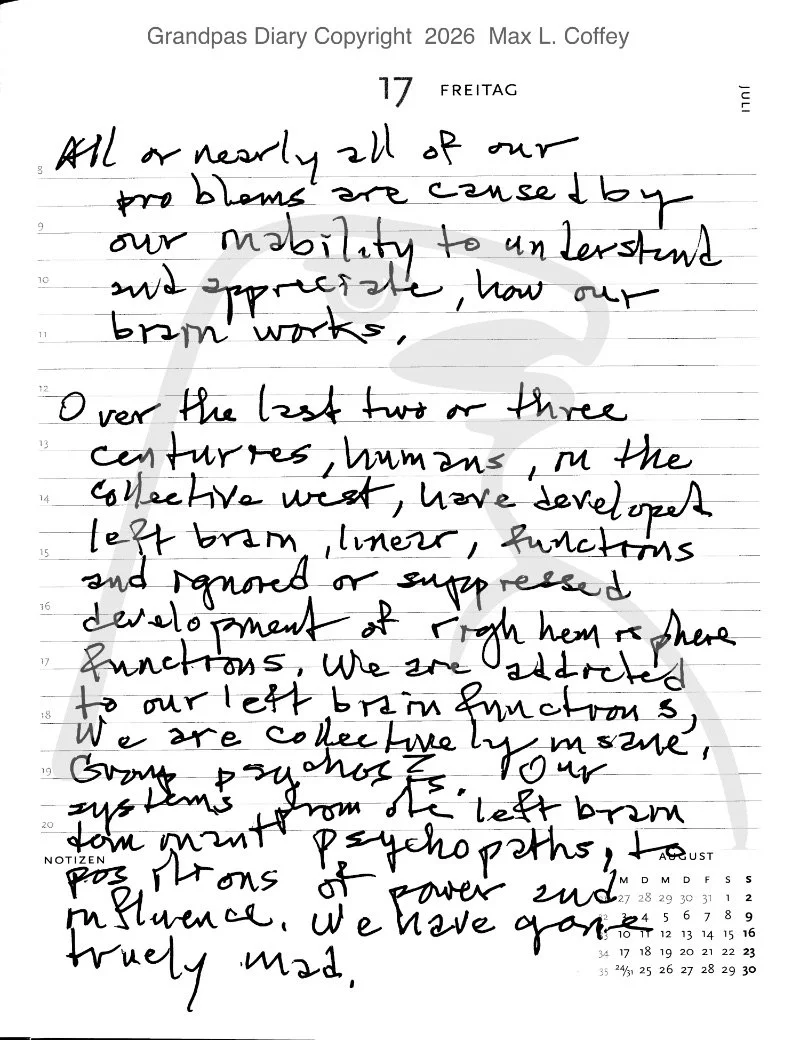 Grandpas Diary Copyright 2026 Max L. Coffey
17 FREITAG
JULI
8 All or nearly all of our
problems are caused by
9 our inability to understand
10 and appreciate, how our
11 brain works.
12 Over the last two or three
13 centuries, humans, in the
14 collective west, have developed
left brain, linear, functions
15 and ignored or suppressed
16 development of righ hemisphere
17 functions. We are addicted
to our left brain functions,
18 We are collectively insane,
19 Group psychosis. Our
systems promote left brain
20 dominant psychopaths, to
NOTIZEN
positions of power and
influence. We have gone
truely mad.
AUGUST
M D M D F S S
27 28 29 30 31 1 2
32 3 4 5 6 7 8 9
33 10 11 12 13 14 15 16
34 17 18 19 20 21 22 23
35 24/31 25 26 27 28 29 30